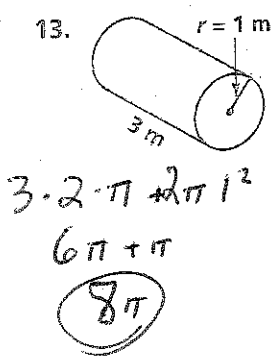 13.
r = 1 m
3 m
3·2·π +2π 1²
6π + π
8π